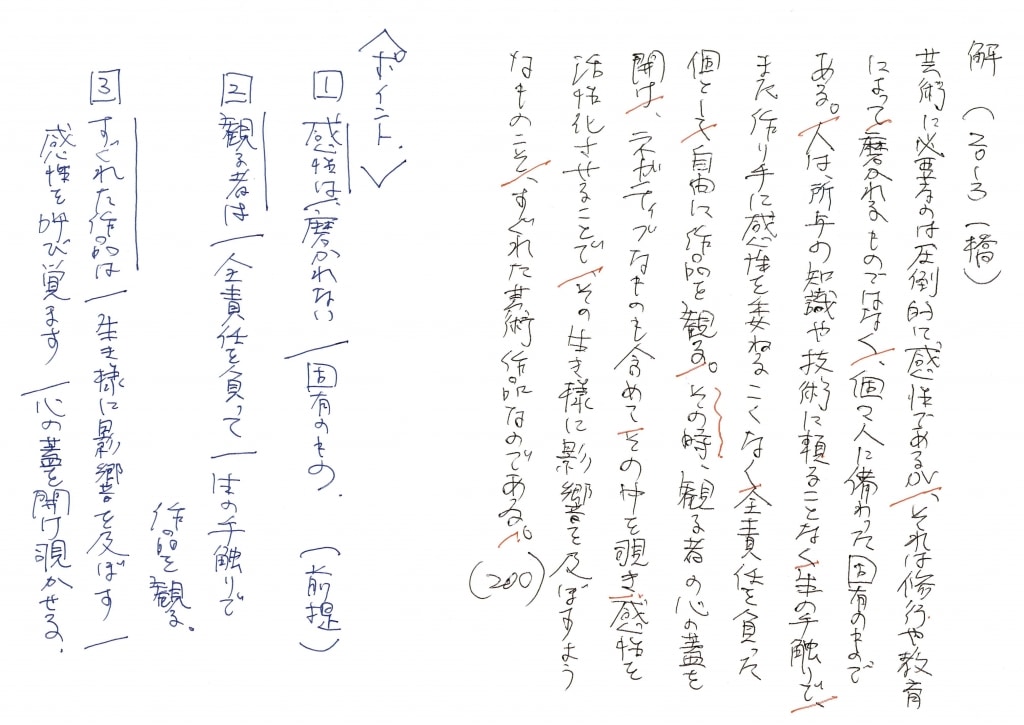 解 (20-3 一橋)
芸術に必要なのは圧倒的に感性であるが、それは修行や教育
によって磨かれるものではなく、個々人に備わった固有のもので
ある。人は所与の知識や技術に頼ることなく生の手触りで、
また作り手に感性を委ねることなく全責任を負った
個として自由に作品を観る。その時、観る者の心の蓋を
開け、ネガティブなものも含めてその中を覗き感性を
活性化させることで、その生き様に影響を及ぼすよう
なものこそ、すぐれた芸術作品なのである。
(200)
〈ポイント.〉
1 感性は、磨かれない / 固有のもの. (前提)
2 観る者は / 全責任を負って / 生の手触りで
作品を観る.
3 すぐれた作品は / 生き様に影響を及ぼす /
感性を呼び覚ます / 心の蓋を開け覗かせる.